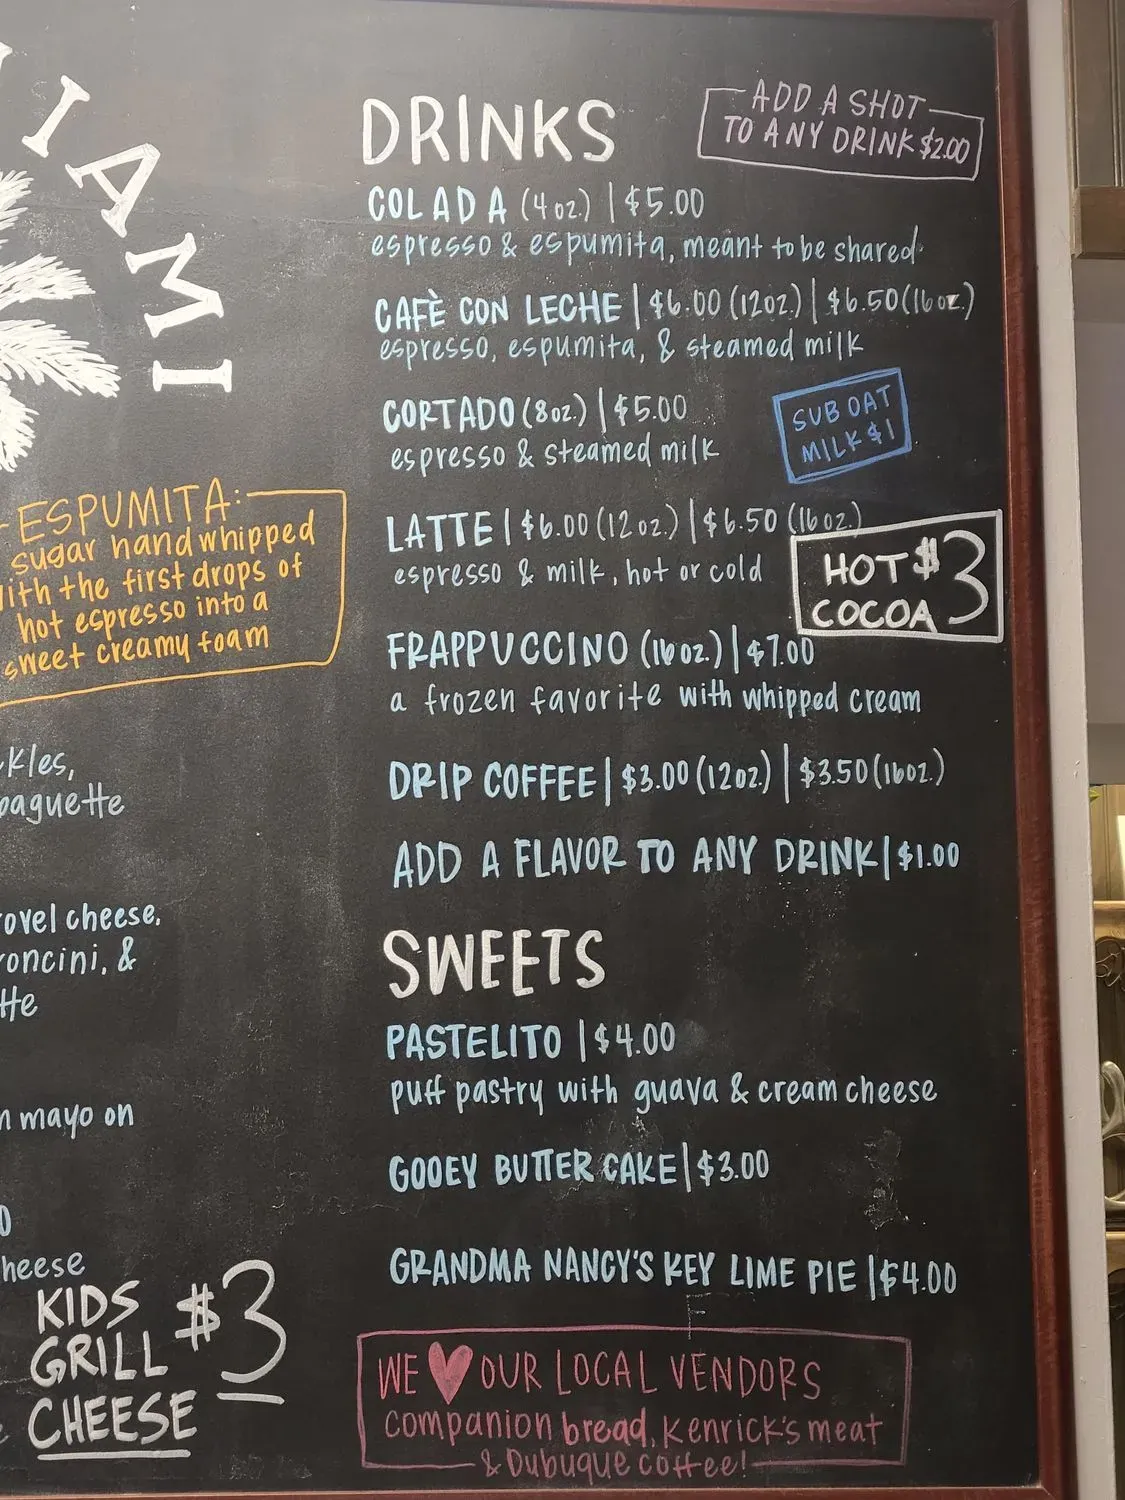 IAMI
ESPUMITA:
sugar hand whipped
with the first drops of
hot espresso into a
sweet creamy foam
baguette
cheese.
&
mayo on
KIDS
GRILL
CHEESE
$3
DRINKS
ADD A SHOT
TO ANY DRINK $2.00
COLADA (4oz.) | $5.00
espresso & espumita, meant to be shared
CAFÈ CON LECHE | $6.00 (12oz.) | $6.50 (16oz)
espresso, espumita, & steamed milk
CORTADO (8oz.) | $5.00
espresso & steamed milk
SUB OAT
MILK $1
LATTE | $6.00 (12oz.) | $6.50 (16oz.)
espresso & milk, hot or cold
HOT
COCOA
$3
FRAPPUCCINO (16oz.) | $7.00
a frozen favorite with whipped cream
DRIP COFFEE | $3.00 (12oz.) | $3.50 (16oz.)
ADD A FLAVOR TO ANY DRINK | $1.00
SWEETS
PASTELITO | $4.00
puff pastry with guava & cream cheese
GOOEY BUTTER CAKE | $3.00
GRANDMA NANCY'S KEY LIME PIE | $4.00
WE ♥ OUR LOCAL VENDORS
companion bread, Kenrick's meat
& Dubuque coffee!